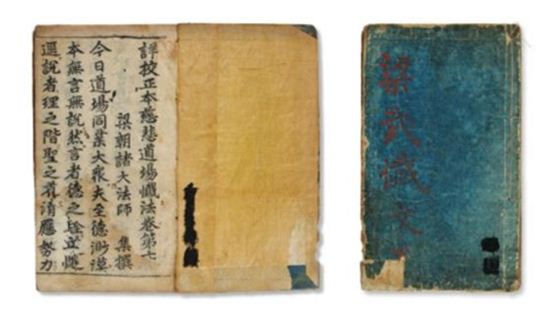 詳校正本慈悲道場懺法卷第七
梁朝諸大法師 集撰
今日道場同業大衆夫至德渺漠
本無言無說然言者德之
說者理之階聖之
梁武懺文